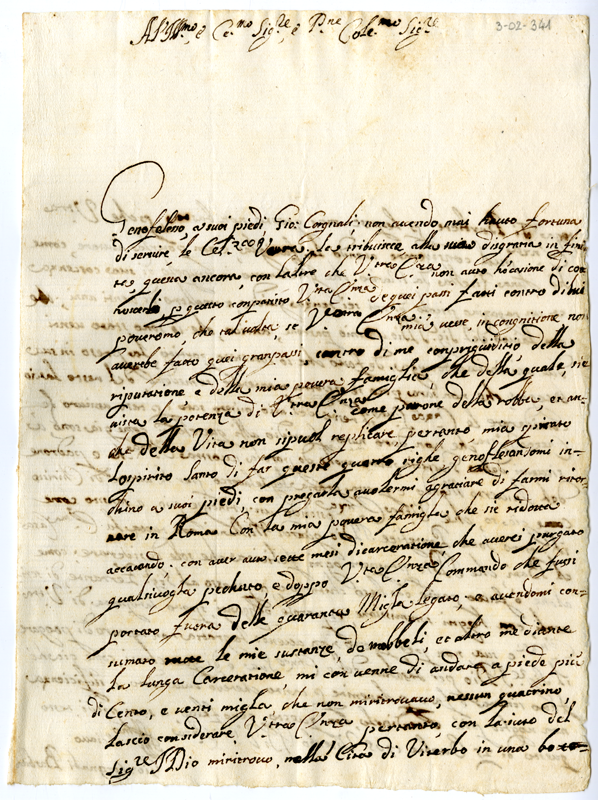 3-02-341
All'Ill.mo e C.mo Sig.re, e P.ne Cole.mo Sig.re
Genoflesso, a suoi piedi Gio: Corgnali non avendo mai hauto fortuna
di servire le Vra, le tribuisce alla sua disgratia in fini
ta, questa ancora, con la dire che V.tra C.nza non avro hocasione di co
per quatto compatito V.tra C.nza de quei passi fatti contro di
poveromo, che tal volta, se Vostra C.nza mia vesse, in cognitione non
averebe fatto quei gran passi contro di me conpregiuditio della
riputatione e della mia povera famiglia, che della quale, si e
vista la potenza di V.tra C.nza come parone della robba, et an
che della Vita non si puol replicare, pertanto, mia spirato
lo spirito Santo di far queste quatro righe genoflesandomi in
chino a suoi piedi con pregarla a volermi agratiare di farmi ritor
nare in Roma Con la mia povera famiglia che si e ridotta
accatando. con aver auto sette mesi di carceratione, che averei purgato
qualsivoglia pechato, e doppo V.tra C.nza Commando che fussi
portato fuora delle quaranta Miglia legato, e avendomi con
sumato tutte le mie sustanze, de mobboli, et altro me diante
la lunga Carceratione, mi con venne di andare a piede più
di Cento, e venti miglia che non miritrovavo, nessun quatrino,
lascio considerare V.tra C.nza pertanto, con la iuto del
Sig.re IDio miritrovo, nella Cita di Viterbo in una